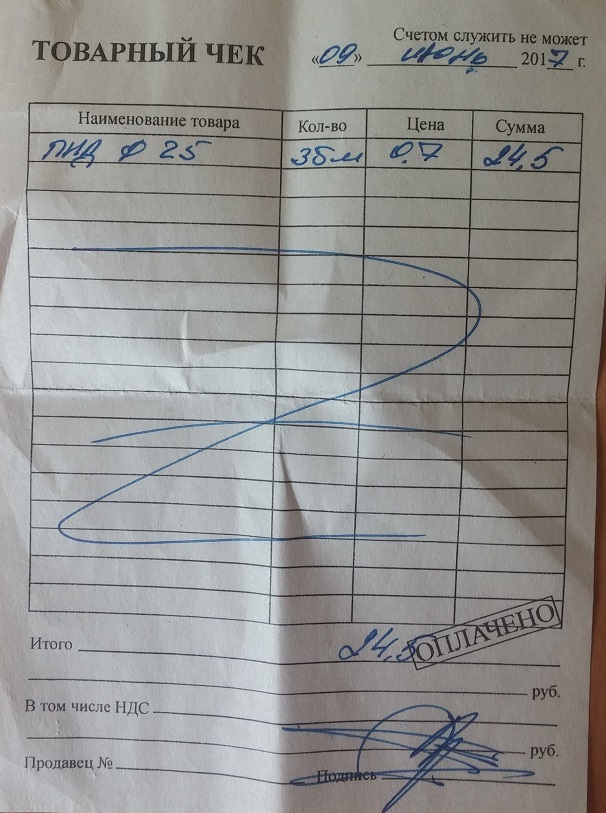 Счетом служить не может
ТОВАРНЫЙ ЧЕК «09» июнь 2017 г.
Наименование товара Кол-во Цена Сумма
ПНД Ф 25 35м 0.7 24,5
Итого 24,5 ОПЛАЧЕНО
руб.
В том числе НДС
руб.
Продавец № Подпись